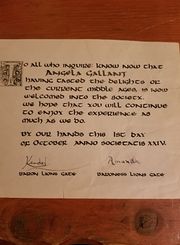 To all who inquire know now that
Angela Gallant
having tasted the delights of
the current middle ages, is now
welcomed into the society.
We hope that you will continue
to enjoy the experience as
much as we do.
By our hands this 1st day
of October anno societatis XXIV.
Kendal Amanda
Baron Lions Gate Baroness Lions Gate